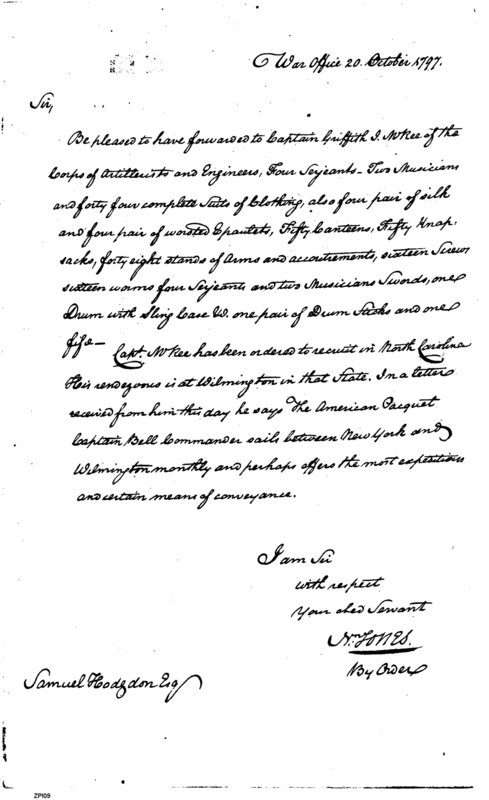 War Office 20. October 1797.
Sir,
Be pleased to have forwarded to Captain Griffith J. McRee of the
Corps of Artillerists and Engineers, Four Serjeants - Two Musicians
and forty four complete Suits of Clothing, also four pair of silk
and four pair of worsted Epaulets, Fifty Canteens, Fifty Knap-
sacks, forty eight stands of Arms and accoutrements, sixteen Screws
sixteen worms four Serjeants and two Musicians Swords, one
Drum with Sling Case &c. one pair of Drum Sticks and one
fife -
Capt. McRee has been ordered to recruit in North Carolina
His rendezvous is at Wilmington in that State. In a letter
received from him this day he says The American Pacquet
Captain Bell Commander sails between New York and
Wilmington monthly and perhaps offers the most expeditious
and certain means of conveyance.
I am Sir
with respect
Your obed Servant
Nn. JONES.
By Order
Samuel Hodgdon Esq
ZPI09